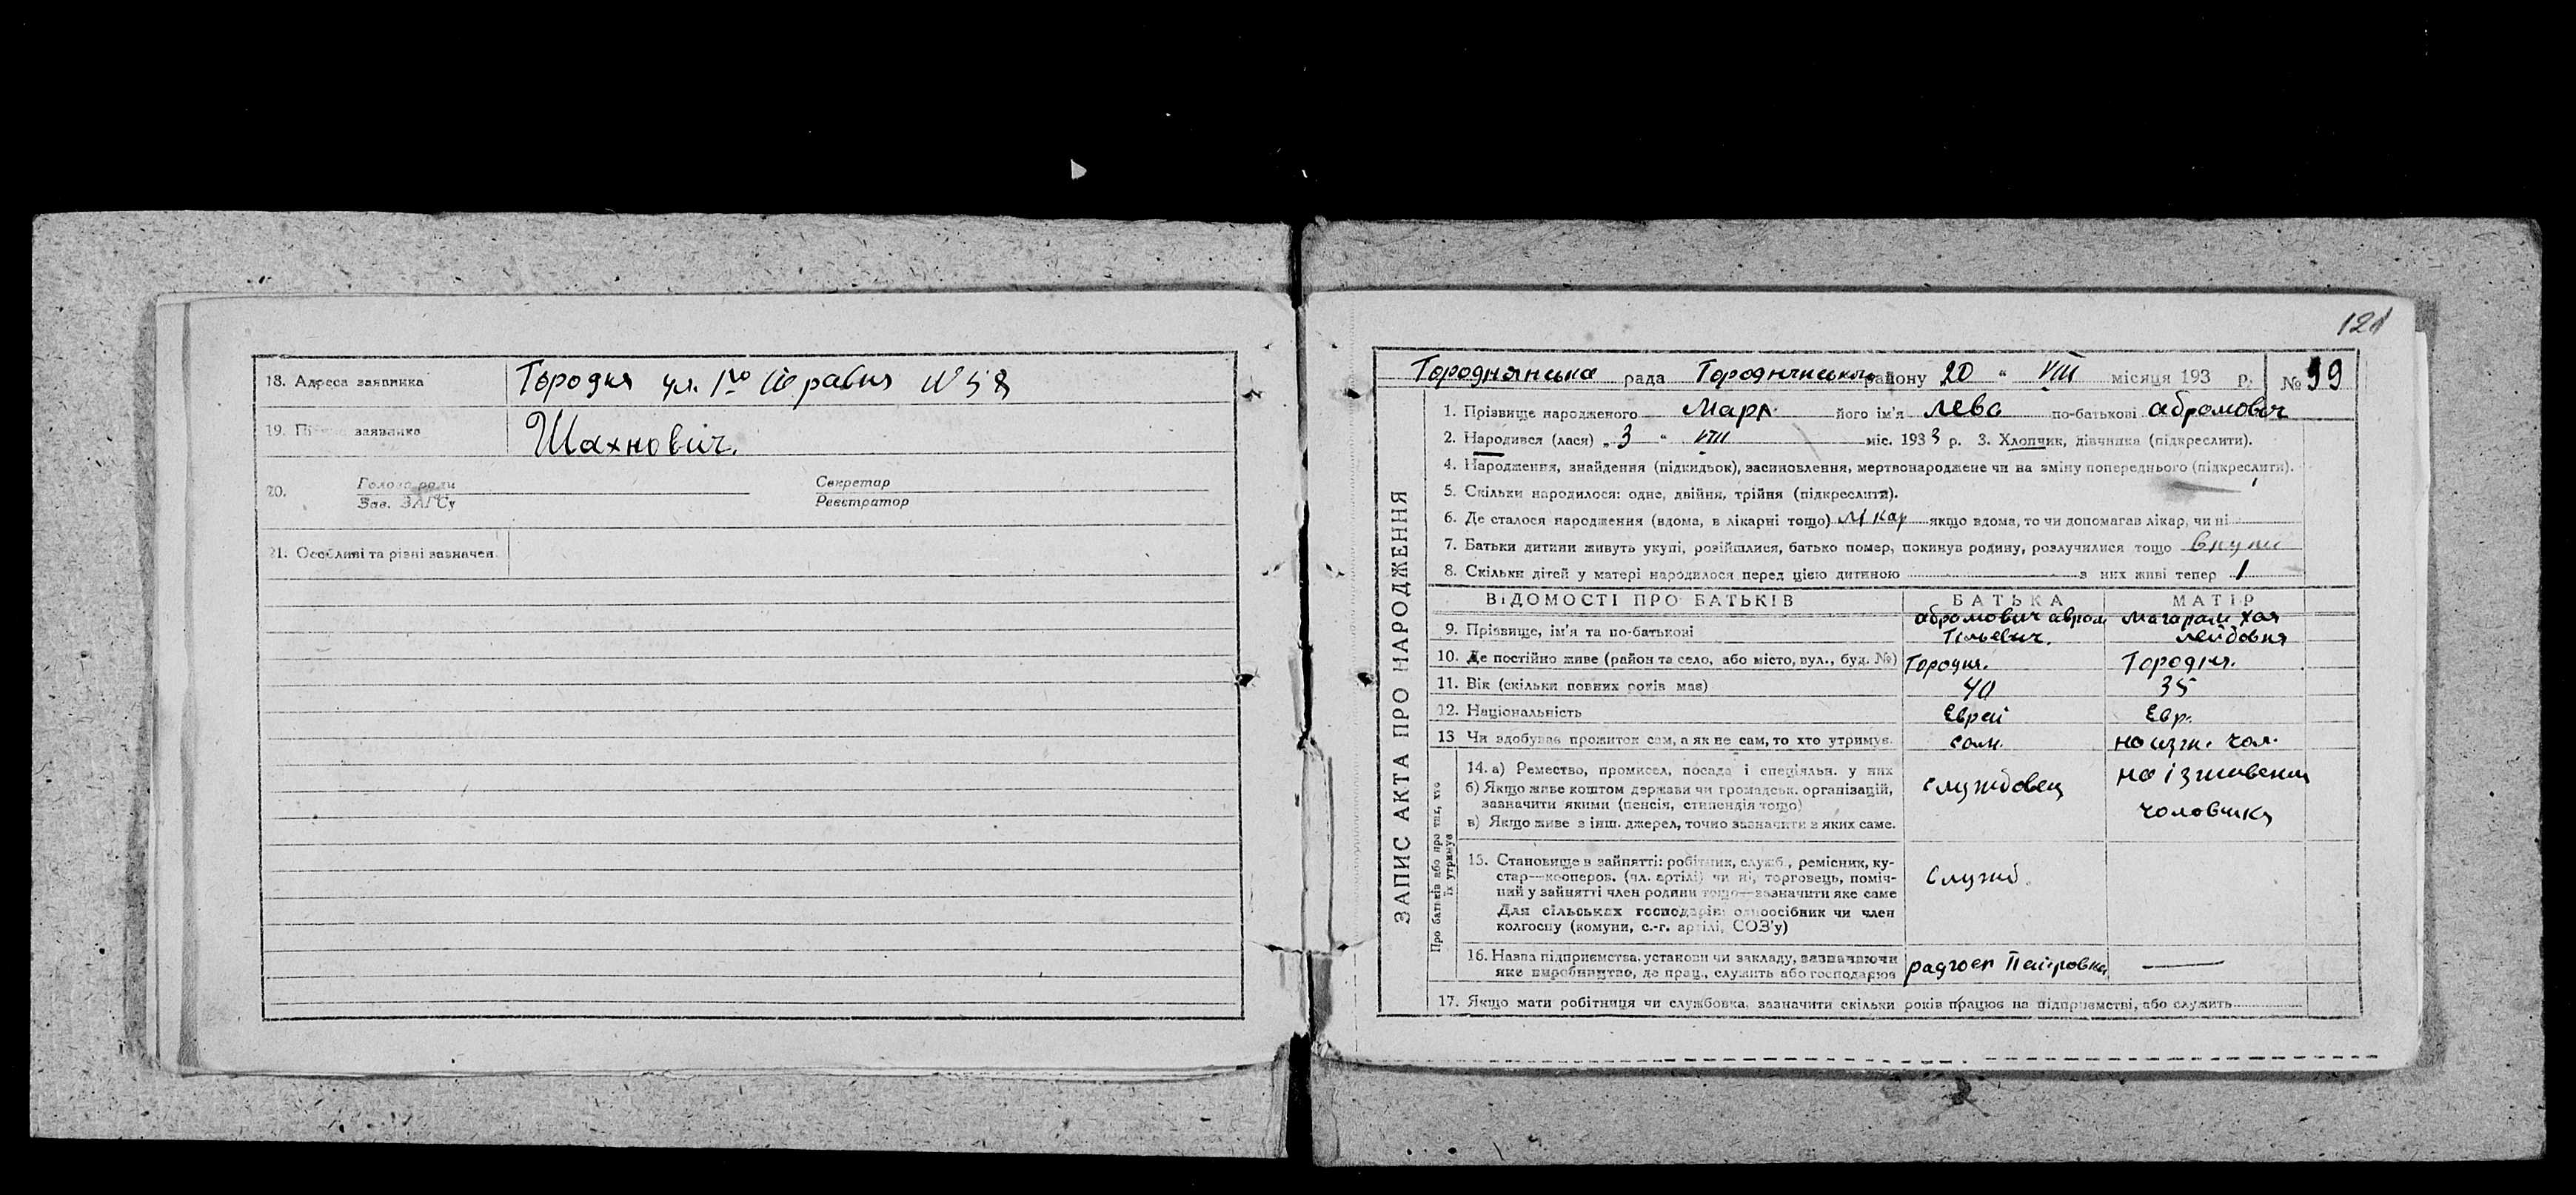 18. Адреса заявника Городня ул. 1го Травня №58
19. Підпис заявника Шахнович.
20. Голова ради Секретар
Зав. ЗАГСу Реєстратор
21. Особливі та різні зазначен.
121
Городнянська рада Городнянського району 20 " VIII місяця 193 р. № 99
ЗАПИС АКТА ПРО НАРОДЖЕННЯ
1. Прізвище народженого його ім'я Лева по-батькові Абромович
2. Народився (лася) „ 3 " VIII міс. 193 3 р. 3. Хлопчик, дівчинка (підкреслити).
4. Народження, знайдення (підкидьок), засиновлення, мертвонароджене чи на зміну попереднього (підкреслити).
5. Скільки народилося: одне, двійня, трійня (підкреслити).
6. Де сталося народження (вдома, в лікарні тощо) Лікар якщо вдома, то чи допомагав лікар, чи ні
7. Батьки дитини живуть укупі, розійшлися, батько помер, покинув родину, розлучилися тощо вкупі
8. Скільки дітей у матері народилося перед цією дитиною з них живі тепер 1
ВІДОМОСТІ ПРО БАТЬКІВ БАТЬКА МАТІР
9. Прізвище, ім'я та по-батькові Абромович Авром Магарам Хая
Гільевич. Лейбовня
10. Де постійно живе (район та село, або місто, вул., буд. №) Городня. Городня.
11. Вік (скільки повних років має) 40 35
12. Національність Еврей Евр.
13 Чи здобуває прожиток сам, а як не сам, то хто утримує. сам. на изж. чол.
Про батьків або про тих, хто
їх утримує
14. а) Ремество, промисел, посада і спеціяльн. у них
б) Якщо живе коштом держави чи громадськ. організацій,
зазначити якими (пенсія, стипендія тощо)
в) Якщо живе з інш. джерел, точно зазначити з яких саме.
службовец
на іждивении
чоловика
15. Становище в зайнятті: робітник, служб., ремісник, ку-
стар—кооперов. (чл. артілі) чи ні, торговець, поміч-
ний у зайнятті член родини тощо—зазначити яке саме
Для сільських господарів: одноосібник чи член
колгоспу (комуни, с.-г. артілі, СОЗ'у)
Служб.
16. Назва підприємства, установи чи закладу, зазначаючи
яке виробництво, де прац., служить або господарює
радгосп
17. Якщо мати робітниця чи службовка, зазначити скільки років працює на підприємстві, або служить